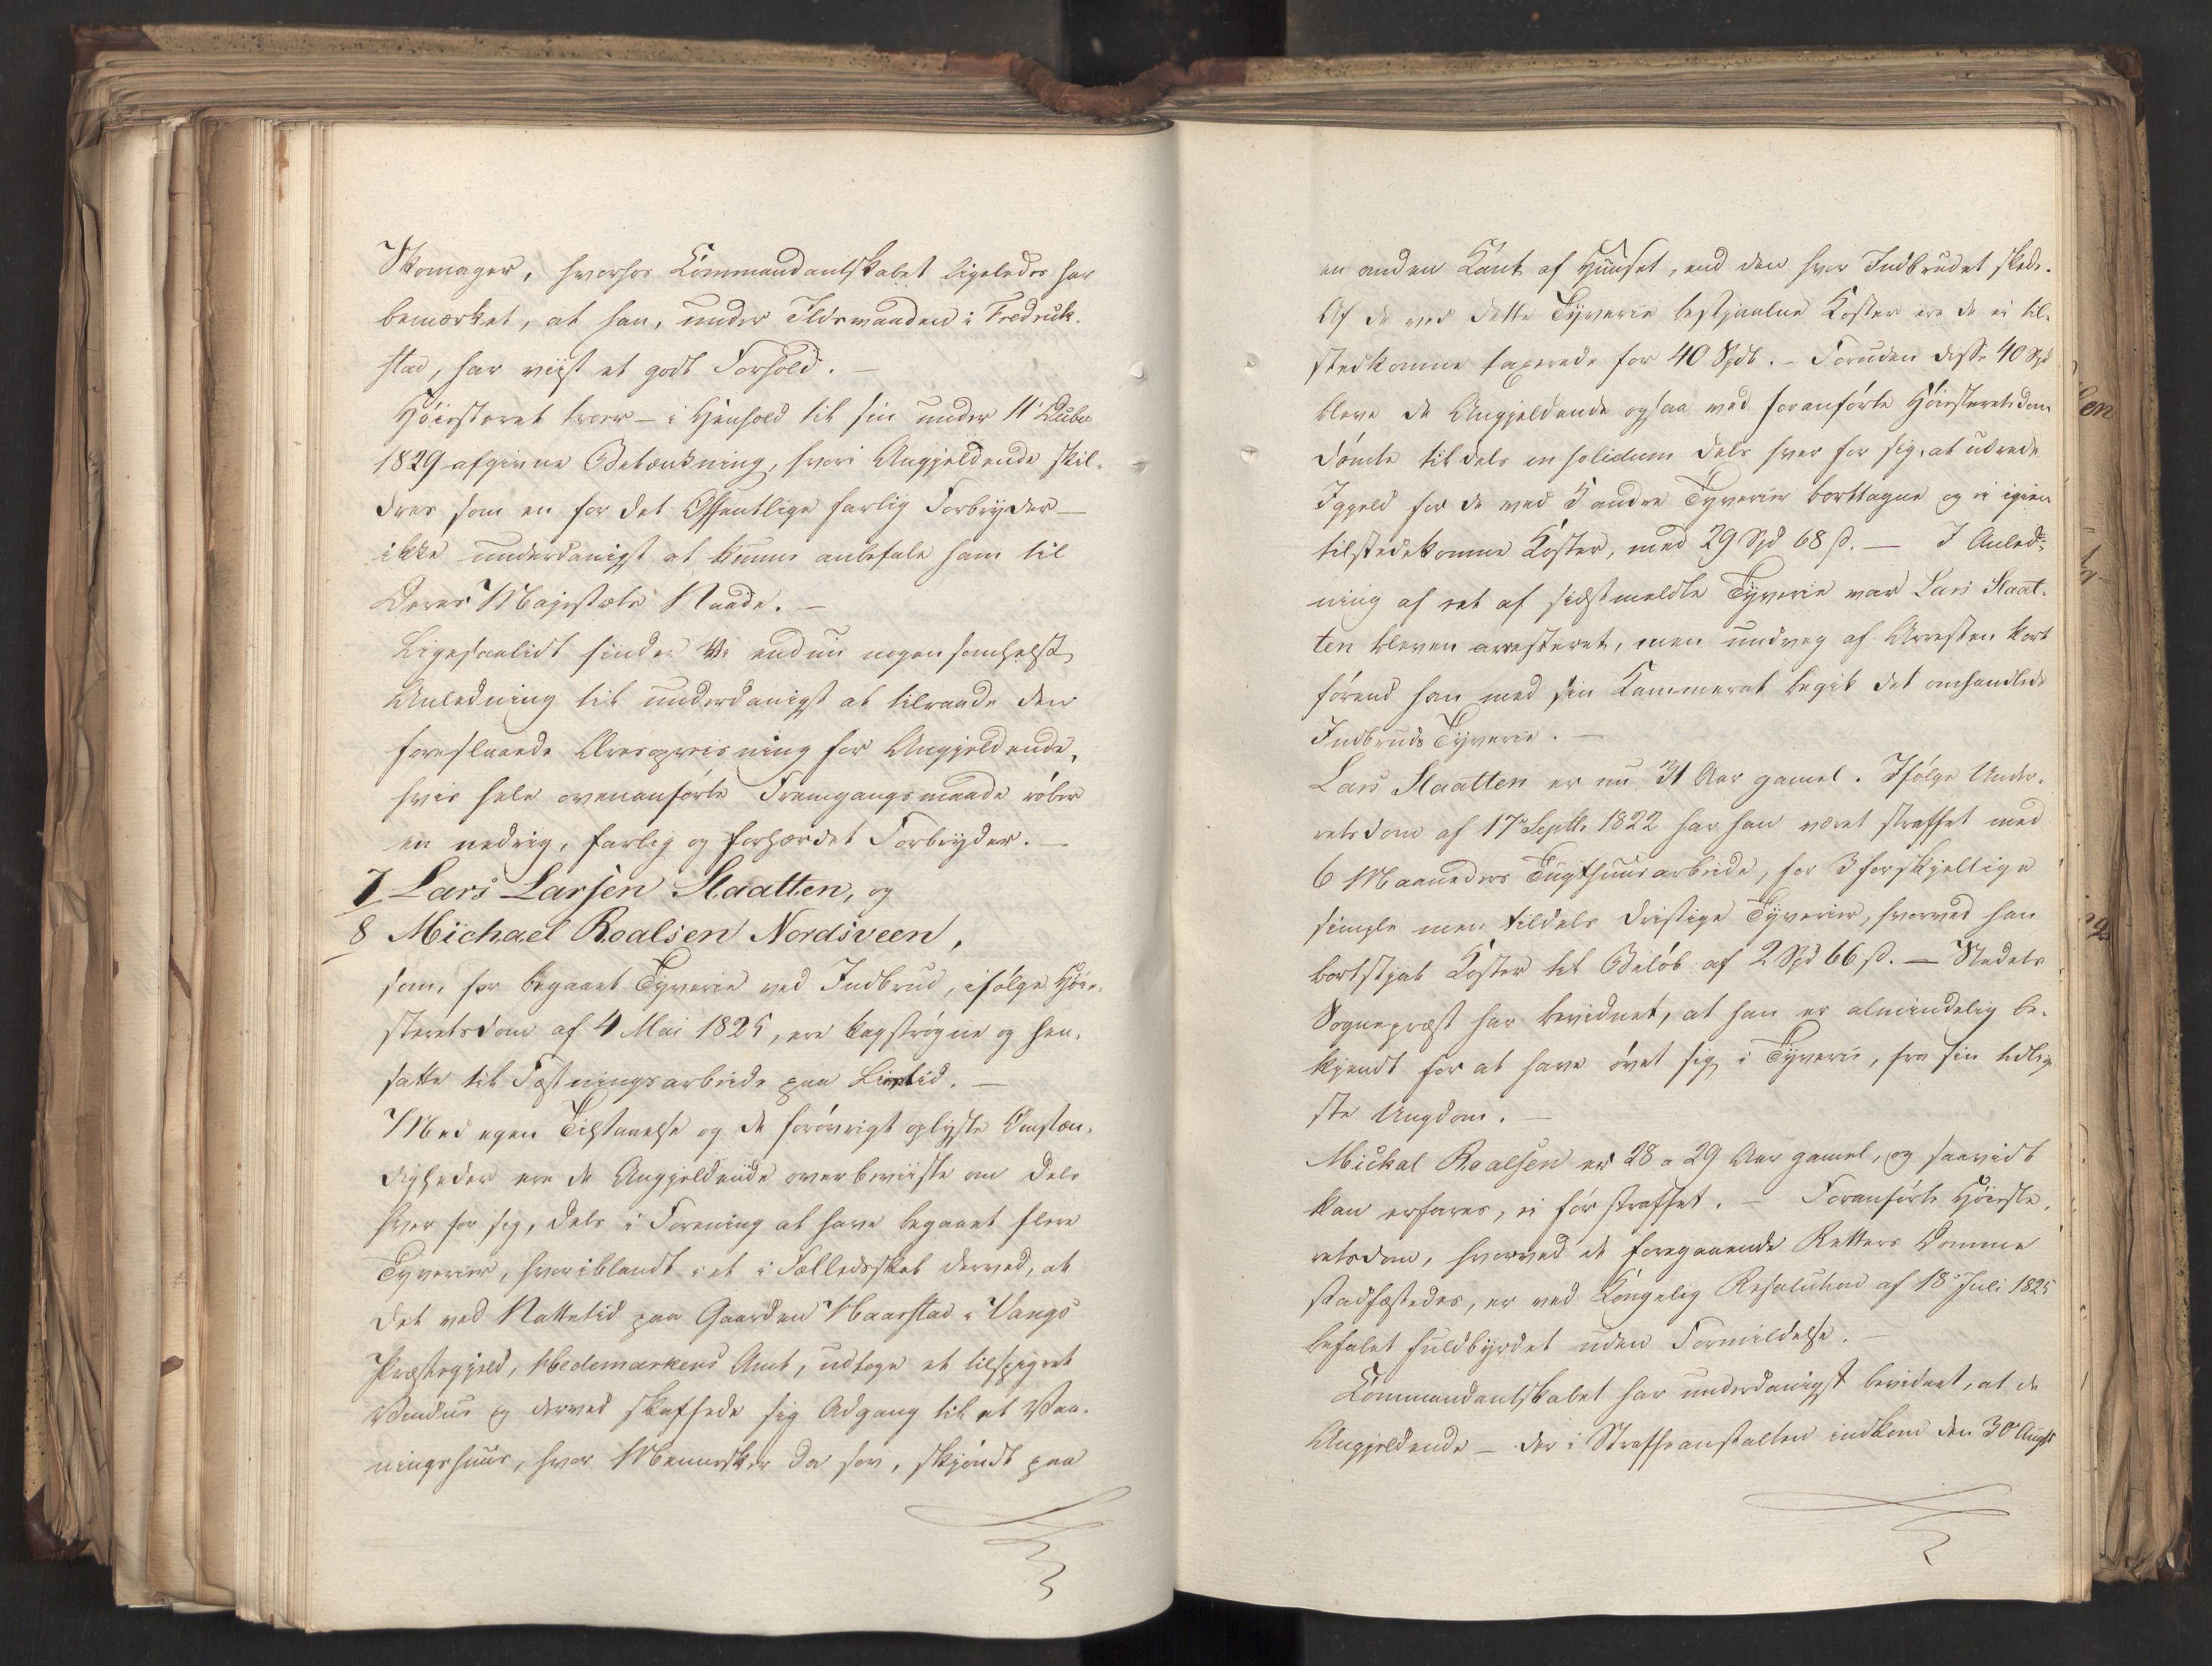 Skomager, hvorhos Commandantskabet ligeledes har
bemærket, at han, under Ildsvaaden i Fredrik-
stad, har viist et godt Forhold. —
Höiesteret troer – i Henhold til sin under 11 Dcbr
1829 afgivne Betænkning, hvori Angjeldende skil-
dres som en for det Offentlige farlig Forbryder —
ikke underdanigst at kunne anbefale ham til
Deres Majestæts Naade. —
Ligesaalidt finder Vi endnu nogensomhelst
Anledning til underdanigst at tilraade den
foreslaaede Æresopreisning for Angjeldende,
hvis hele ovenanförte Fremgangsmaade röber
en nedrig, farlig og forhærdet Forbryder. —
7 Lars Larsen Slaatten, og
8 Michael Roalsen Nordsveen,
som, for begaaet Tyverie ved Indbrud, ifölge Höie-
steretsdom af 4 Mai 1825, ere kagströgne og hen-
satte til Fæstningsarbeide paa Livstid. —
Med egen Tilstaaelse og de forövrigt oplyste Omstæn-
digheder ere de Angjeldende overbeviiste om dels
hver for sig, dels i Forening at have begaaet flere
Tyverier, hvoriblandt et i Fælledsskab derved, at
det ved Nattetid paa Gaarden Haarstad i Vangs
Præstegjeld, Hedemarkens Amt, udtoge et tilspigret
Vindue og derved skaffede sig Adgang til et Vaa-
ningshuus, hvor Mennesker da sov, skjöndt paa
en anden Kant af Huuset, end den hvor Indbrudet skede.
Af de ved dette Tyverie bestjaalne Koster ere de ei til-
stedkomne taxerede for 40 Spdl. — Foruden disse 40 Spd
bleve de Angjeldende ogsaa ved foranförte Höiesteretsdom
dömte til dels in solidum dels hver for sig, at udrede
Igjeld for de ved 5 andre Tyverier borttagne og ei igien
tilstedekomne Koster, med 29 Spd 68 ß. — I Anled-
ning af et af sidstmeldte Tyverie var Lars Slaat-
ten bleven arresteret, men undveg af Arresten kort
förend han med sin Kammerat begik det omhandlede
Indbruds Tyverie. —
Lars Slaatten er nu 31 Aar gamel. Ifölge Under-
retsdom af 17 Septbr 1822 har han været straffet med
6 Maaneders Tugthuusarbeide, for 3 forskjellige
simple men tildels dristige Tyverier, hvorved han
bortstjal Koster til Belöb af 2 Spd 66 ß. — Stedets
Sognepræst har bevidnet, at han er almindelig be-
kjendt for at have övet sig i Tyverie, fra sin tidlig-
ste Ungdom. —
Mickal Roalsen er 28 a 29 Aar gamel, og saavidt
kan erfares, ei för straffet. — Foranförte Höieste-
retsdom, hvorved de foregaaende Retters Domme
stadfæstedes, er ved Kongelig Resolution af 18 Juli 1825
befalet fuldbyrdet uden Formildelse. —
Commandantskabet har underdanigst bevidnet, at de
Angjeldende – der i Straffeanstalten indkom den 30 Augst